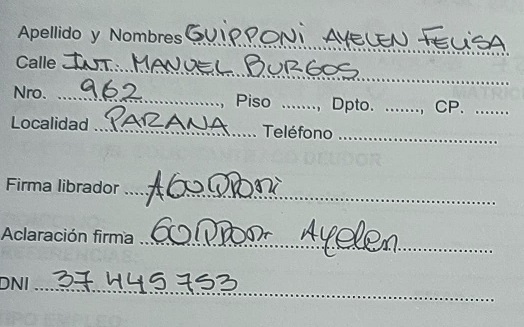 Apellido y Nombres GUIPPONI AYELEN FELISA
Calle INT. MANUEL BURGOS
Nro. 962, Piso ......, Dpto. ......, CP. ......
Localidad PARANA Teléfono
Firma librador
Aclaración firma Ayelen
DNI 37 445 753